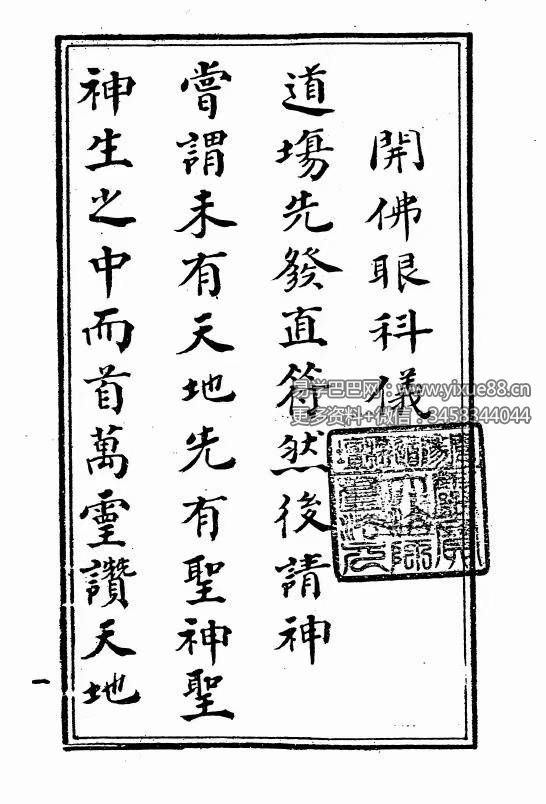 開佛眼科儀
道場先發直符然後請神
嘗謂未有天地先有聖神聖
神生之中而首萬霊讚天地
一
易学巴巴网：www.yixue88.cn
更多资料+微信：3453344044